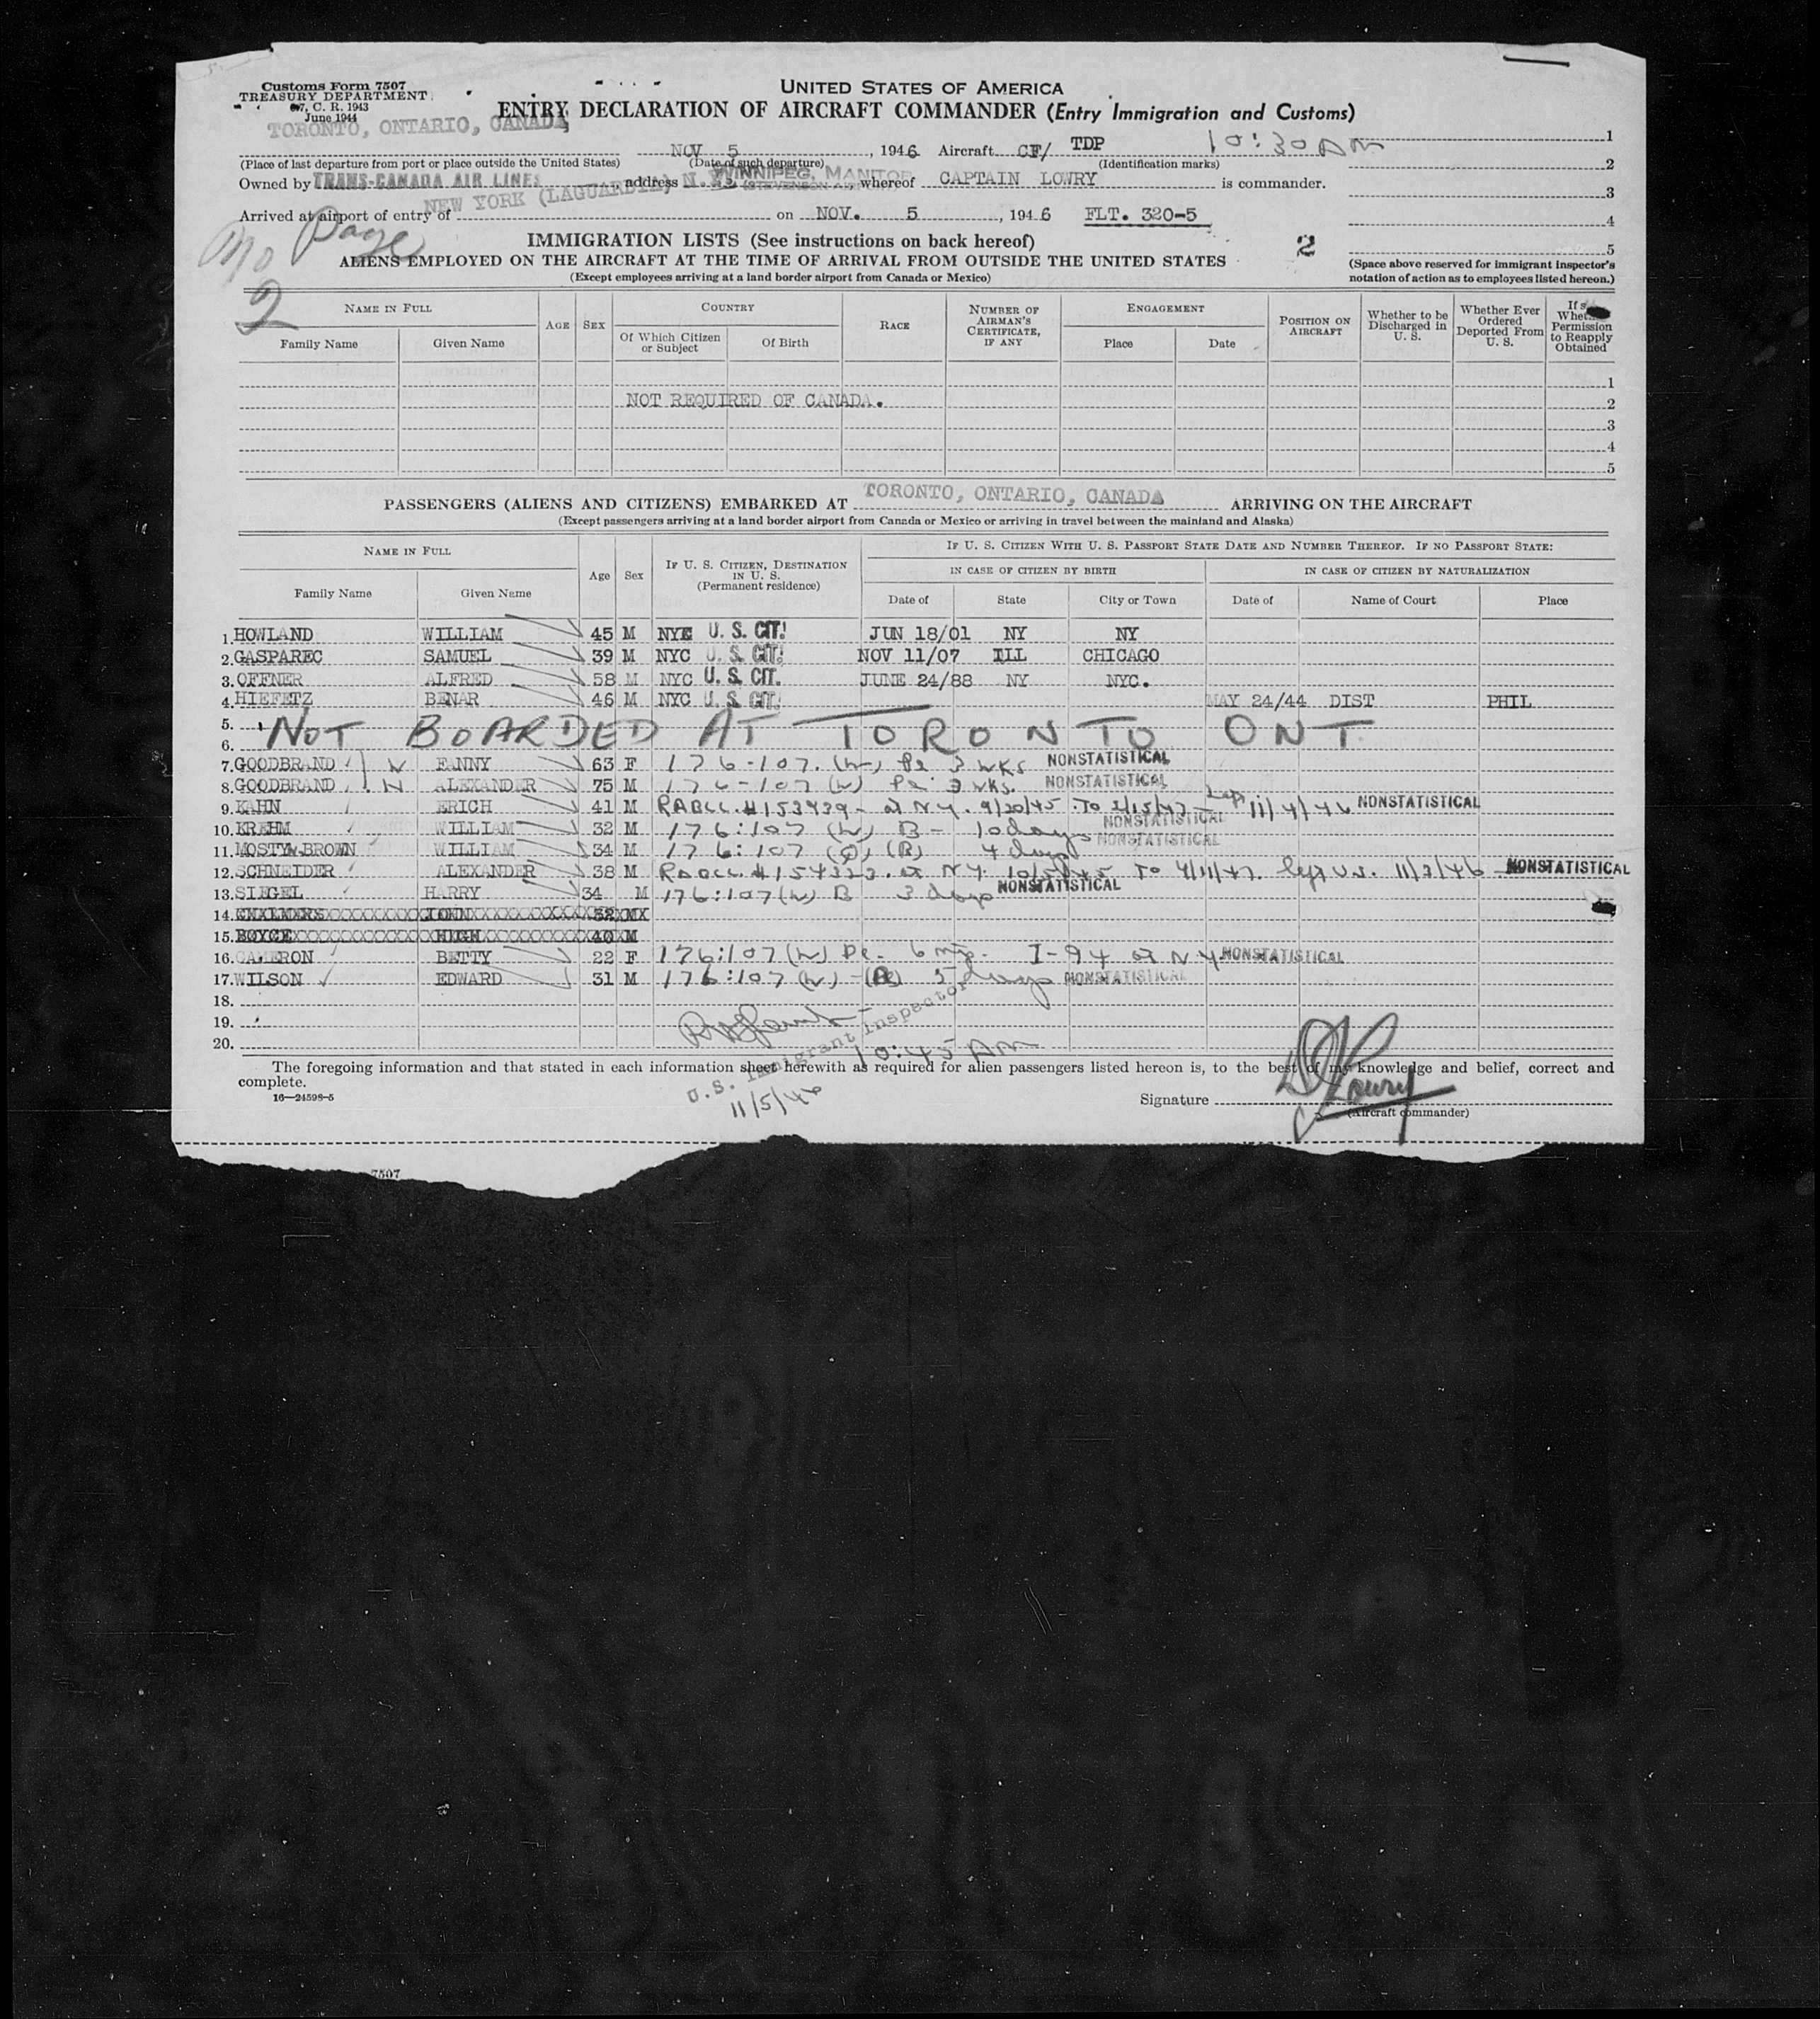 Customs Form 7507
TREASURY DEPARTMENT
7, C. R. 1943
June 1944
UNITED STATES OF AMERICA
ENTRY DECLARATION OF AIRCRAFT COMMANDER (Entry Immigration and Customs)
TORONTO, ONTARIO, CANADA
NOV 5, 1946 Aircraft CF/ TDP 10:30 AM
1
(Place of last departure from port or place outside the United States) (Date of such departure) (Identification marks)
2
Owned by TRANS-CANADA AIR LINES, address WINNIPEG, MANITOB whereof CAPTAIN LOWRY is commander.
3
NEW YORK (LAGUARDIA)
Arrived at airport of entry of on NOV. 5, 1946 FLT. 320-5
4
Page
2
IMMIGRATION LISTS (See instructions on back hereof)
2
5
ALIENS EMPLOYED ON THE AIRCRAFT AT THE TIME OF ARRIVAL FROM OUTSIDE THE UNITED STATES
(Except employees arriving at a land border airport from Canada or Mexico)
(Space above reserved for immigrant inspector's notation of action as to employees listed hereon.)
NAME IN FULL
Family Name Given Name
AGE SEX
COUNTRY
Of Which Citizen or Subject Of Birth
RACE
NUMBER OF AIRMAN'S CERTIFICATE, IF ANY
ENGAGEMENT
Place Date
POSITION ON AIRCRAFT
Whether to be Discharged in U. S.
Whether Ever Ordered Deported From U. S.
If s Whet Permission to Reapply Obtained
1
NOT REQUIRED OF CANADA. 2
3
4
5
PASSENGERS (ALIENS AND CITIZENS) EMBARKED AT TORONTO, ONTARIO, CANADA ARRIVING ON THE AIRCRAFT
(Except passengers arriving at a land border airport from Canada or Mexico or arriving in travel between the mainland and Alaska)
NAME IN FULL
Family Name Given Name
Age Sex
IF U. S. CITIZEN, DESTINATION IN U. S. (Permanent residence)
IF U. S. CITIZEN WITH U. S. PASSPORT STATE DATE AND NUMBER THEREOF. IF NO PASSPORT STATE:
IN CASE OF CITIZEN BY BIRTH IN CASE OF CITIZEN BY NATURALIZATION
Date of State City or Town Date of Name of Court Place
1. HOWLAND WILLIAM 45 M NYC U. S. CIT. JUN 18/01 NY NY
2. GASPAREC SAMUEL 39 M NYC U. S. CIT. NOV 11/07 ILL CHICAGO
3. OFFNER ALFRED 58 M NYC U. S. CIT. JUNE 24/88 NY NYC.
4. HIEFETZ BENAR 46 M NYC U. S. CIT. MAY 24/44 DIST PHIL
5.
NOT BOARDED AT TORONTO ONT
6.
7. GOODBRAND FANNY 63 F 176-107. (W) Pe 3 wks NONSTATISTICAL
8. GOODBRAND ALEXANDER 75 M 176-107 (W) Pe 3 wks. NONSTATISTICAL
9. KAHN ERICH 41 M RABCC. #153939 - at N.Y. 9/20/45 To 2/15/47 - 11/4/46 NONSTATISTICAL
10. KREHM WILLIAM 32 M 176:107 (W) B - 10 days NONSTATISTICAL
11. MOSTYN-BROWN WILLIAM 34 M 176:107 (B) 4 days NONSTATISTICAL
12. SCHNEIDER ALEXANDER 38 M RABCC. at N.Y. 10/5/45 To 4/11/47. left U.S. 11/3/46 NONSTATISTICAL
13. SIEGEL HARRY 34 M 176:107 (W) B 3 days NONSTATISTICAL
14. CHALMERS JOHN 32 M
15. BOYCE HUGH 40 M
16. CAMERON BETTY 22 F 176:107 (W) Pe. 6 mo. I-94 at N.Y. NONSTATISTICAL
17. WILSON EDWARD 31 M 176:107 (W) 5 days NONSTATISTICAL
18.
19.
20.
U.S. Immigrant Inspector
10:45 AM
11/5/46
The foregoing information and that stated in each information sheet herewith as required for alien passengers listed hereon is, to the best of my knowledge and belief, correct and
complete.
16—24598-5
Signature Lowry
(Aircraft commander)
7507